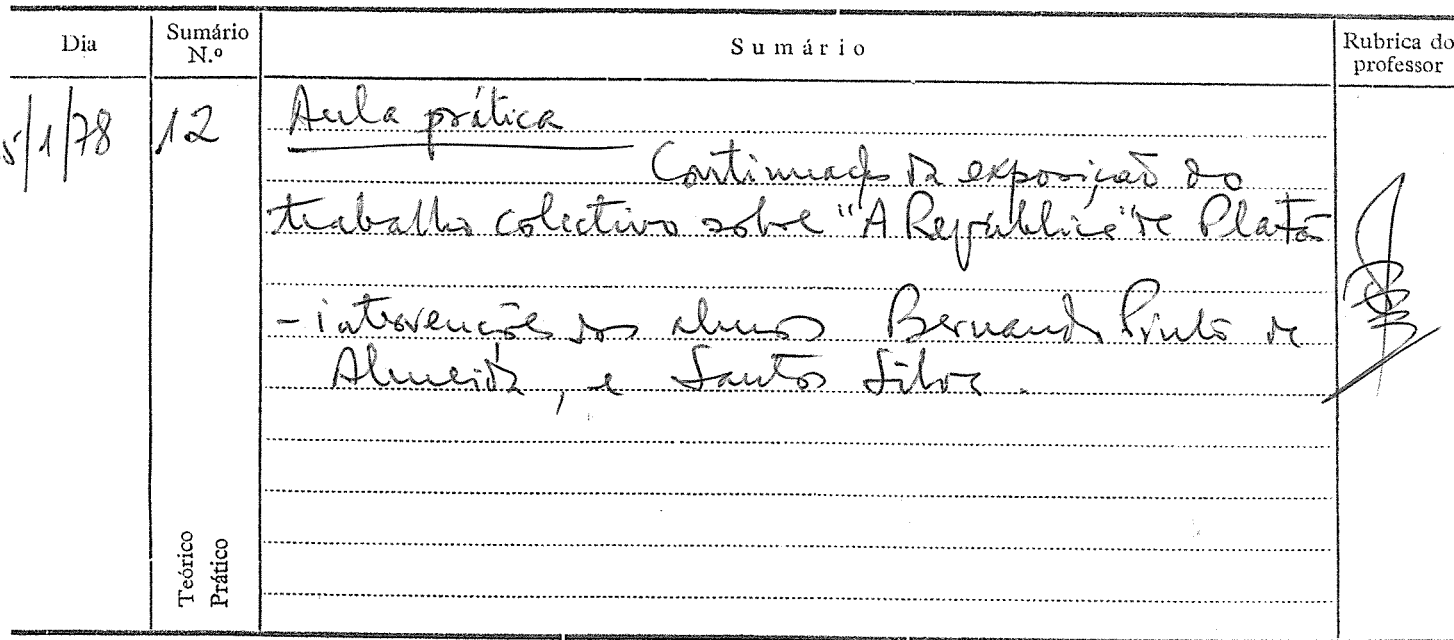 Dia
Sumário N.º
Sumário
Rubrica do professor
5/1/78
12
Aula prática
Continuação da exposição do
trabalho colectivo sobre "A República" de Platão
- intervenções dos alunos Bernardo Pinto de
Almeida, e Santos Silva.
Teórico
Prático